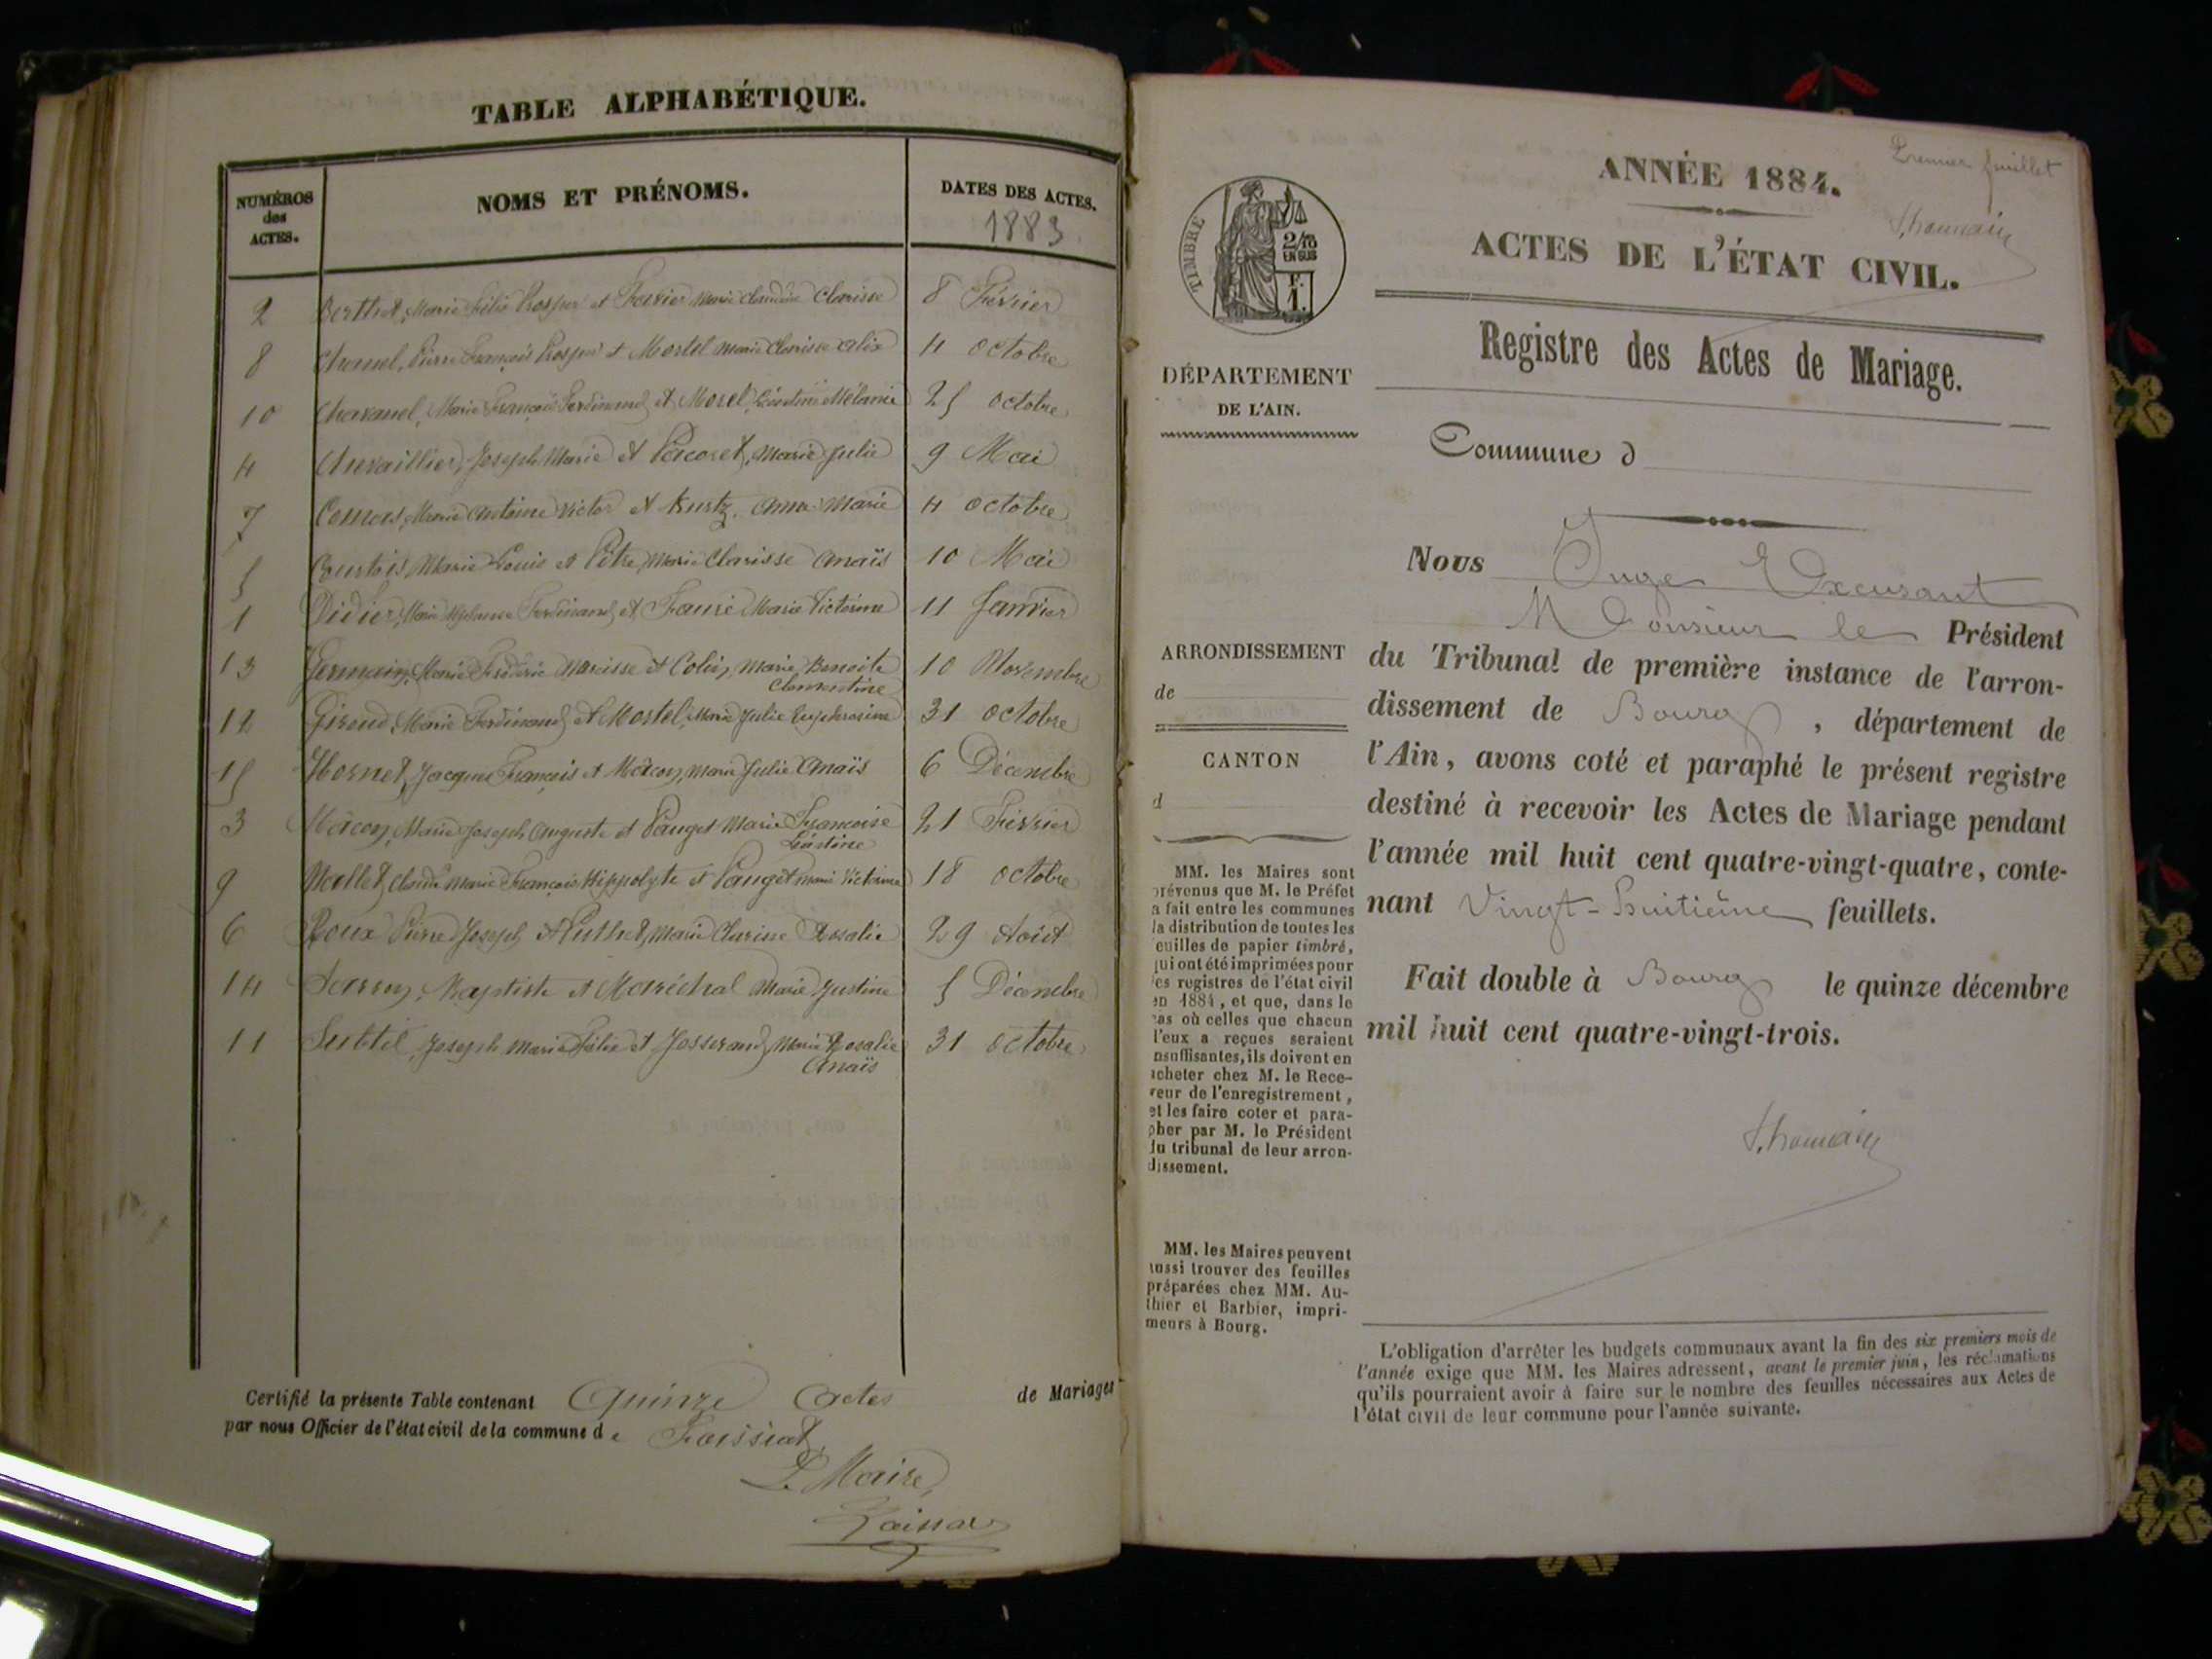 TABLE ALPHABÉTIQUE.
NUMÉROS des ACTES.
NOMS ET PRÉNOMS.
DATES DES ACTES.
1883
2 Berthet, Marie Félix Prosper et Ferrier Marie Claudine Clarisse 8 Février
8 Chanel, Pierre François Prosper et Mortel Marie Clarisse Alix 11 octobre
10 Chavanel, Marie François Ferdinand et Morel, Léontine Mélanie 25 octobre
4 Chevaillier, Joseph Marie et Pacoret, Marie Julie 9 Mai
7 Comas, Marie Antoine Victor et Kurtz, Anna Marie 4 octobre
5 Courtois, Marie Louis et Pêtre, Marie Clarisse Anaïs 10 Mai
1 Didier, Marie Alphonse Ferdinand et Faure Marie Victorine 11 Janvier
13 Germain, Marie Frédéric Narcisse et Colin, Marie Benoite 10 Novembre
Clementine
12 Giroud, Marie Ferdinand et Mortel, Marie Julie Euphrosine 31 octobre
15 Hornet, Jacques François et Mâcon, Marie Julie Anaïs 6 Décembre
3 Mâcon, Marie Joseph Auguste et Pauget Marie Françoise 21 Février
Léastine
9 Mallet, Claude Marie François Hippolyte et Pauget Marie Victorine 18 octobre
6 Roux Pierre Joseph et Puthet, Marie Clarisse Rosalie 29 Août
14 Baptiste et Maréchal Marie Justine 5 Décembre
11 Subtil, Joseph Marie Félix et Josserand, Marie Rosalie 31 octobre
Anaïs
Certifié la présente Table contenant Quinze actes de Mariages
par nous Officier de l'état civil de la commune de Foissiat,
Le Maire,
Premier feuillet
ANNÉE 1884.
ACTES DE L'ÉTAT CIVIL.
TIMBRE
2/10
EN SUS
F.
1.
Registre des Actes de Mariage.
DÉPARTEMENT
DE L'AIN.
Commune d
Nous Juge Excusant
Monsieur le Président
du Tribunal de première instance de l'arron-
dissement de Bourg, département de
l'Ain, avons coté et paraphé le présent registre
destiné à recevoir les Actes de Mariage pendant
l'année mil huit cent quatre-vingt-quatre, conte-
nant Vingt-huitième feuillets.
Fait double à Bourg le quinze décembre
mil huit cent quatre-vingt-trois.
ARRONDISSEMENT
de
CANTON
d
MM. les Maires sont
prévenus que M. le Préfet
a fait entre les communes
la distribution de toutes les
feuilles de papier timbré,
qui ont été imprimées pour
les registres de l'état civil
en 1884, et que, dans le
cas où celles que chacun
d'eux a reçues seraient
insuffisantes, ils doivent en
acheter chez M. le Rece-
veur de l'enregistrement,
et les faire coter et para-
pher par M. le Président
du tribunal de leur arron-
dissement.
MM. les Maires peuvent
aussi trouver des feuilles
préparées chez MM. Au-
thier et Barbier, impri-
meurs à Bourg.
L'obligation d'arrêter les budgets communaux avant la fin des six premiers mois de
l'année exige que MM. les Maires adressent, avant le premier juin, les réclamations
qu'ils pourraient avoir à faire sur le nombre des feuilles nécessaires aux Actes de
l'état civil de leur commune pour l'année suivante.